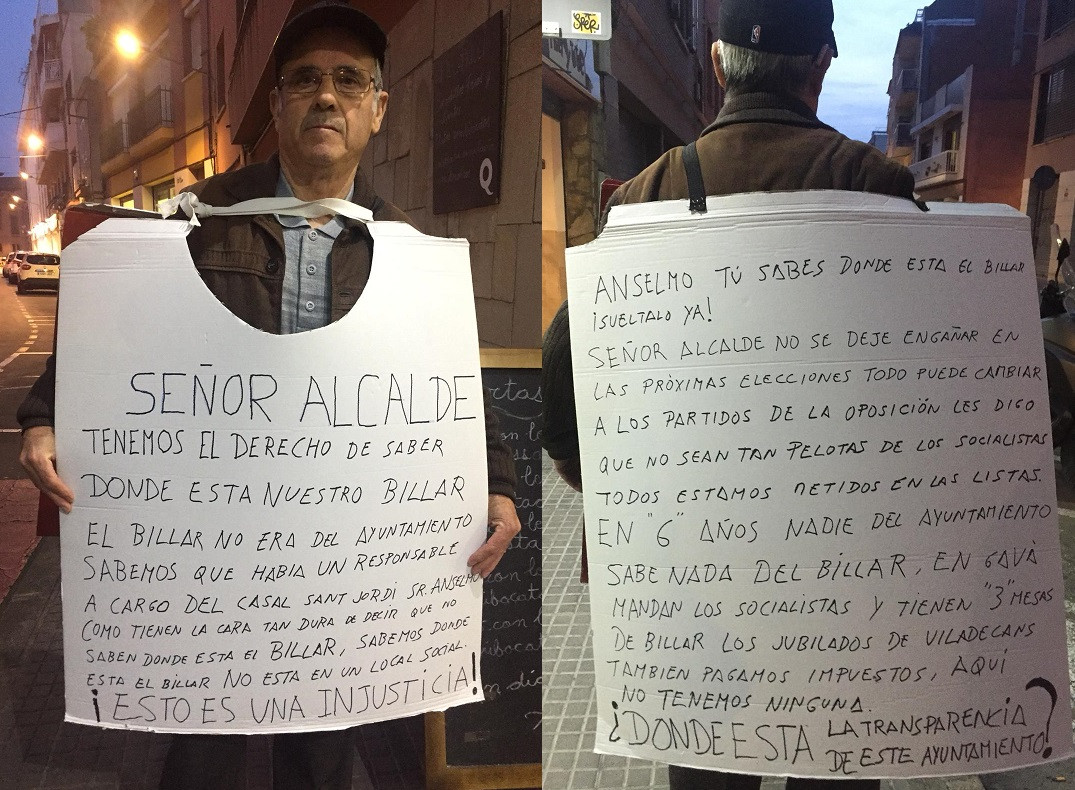 SEÑOR ALCALDE
TENEMOS EL DERECHO DE SABER
DONDE ESTA NUESTRO BILLAR
EL BILLAR NO ERA DEL AYUNTAMIENTO
SABEMOS QUE HABIA UN RESPONSABLE
A CARGO DEL CASAL SANT JORDI SR. ANSELMO
COMO TIENEN LA CARA TAN DURA DE DECIR QUE NO
SABEN DONDE ESTA EL BILLAR, SABEMOS DONDE
ESTA EL BILLAR NO ESTA EN UN LOCAL SOCIAL.
¡ESTO ES UNA INJUSTICIA!
Q
ANSELMO TÚ SABES DONDE ESTA EL BILLAR
¡SUELTALO YA!
SEÑOR ALCALDE NO SE DEJE ENGAÑAR EN
LAS PRÒXIMAS ELECCIONES TODO PUEDE CAMBIAR
A LOS PARTIDOS DE LA OPOSICIÓN LES DIGO
QUE NO SEAN TAN PELOTAS DE LOS SOCIALISTAS
TODOS ESTAMOS METIDOS EN LAS LISTAS.
EN "6" AÑOS NADIE DEL AYUNTAMIENTO
SABE NADA DEL BILLAR, EN GAVÀ
MANDAN LOS SOCIALISTAS Y TIENEN "3" MESAS
DE BILLAR LOS JUBILADOS DE VILADECANS
TAMBIEN PAGAMOS IMPUESTOS, AQUÍ
NO TENEMOS NINGUNA.
¿DONDE ESTA LA TRANSPARENCIA
DE ESTE AYUNTAMIENTO?